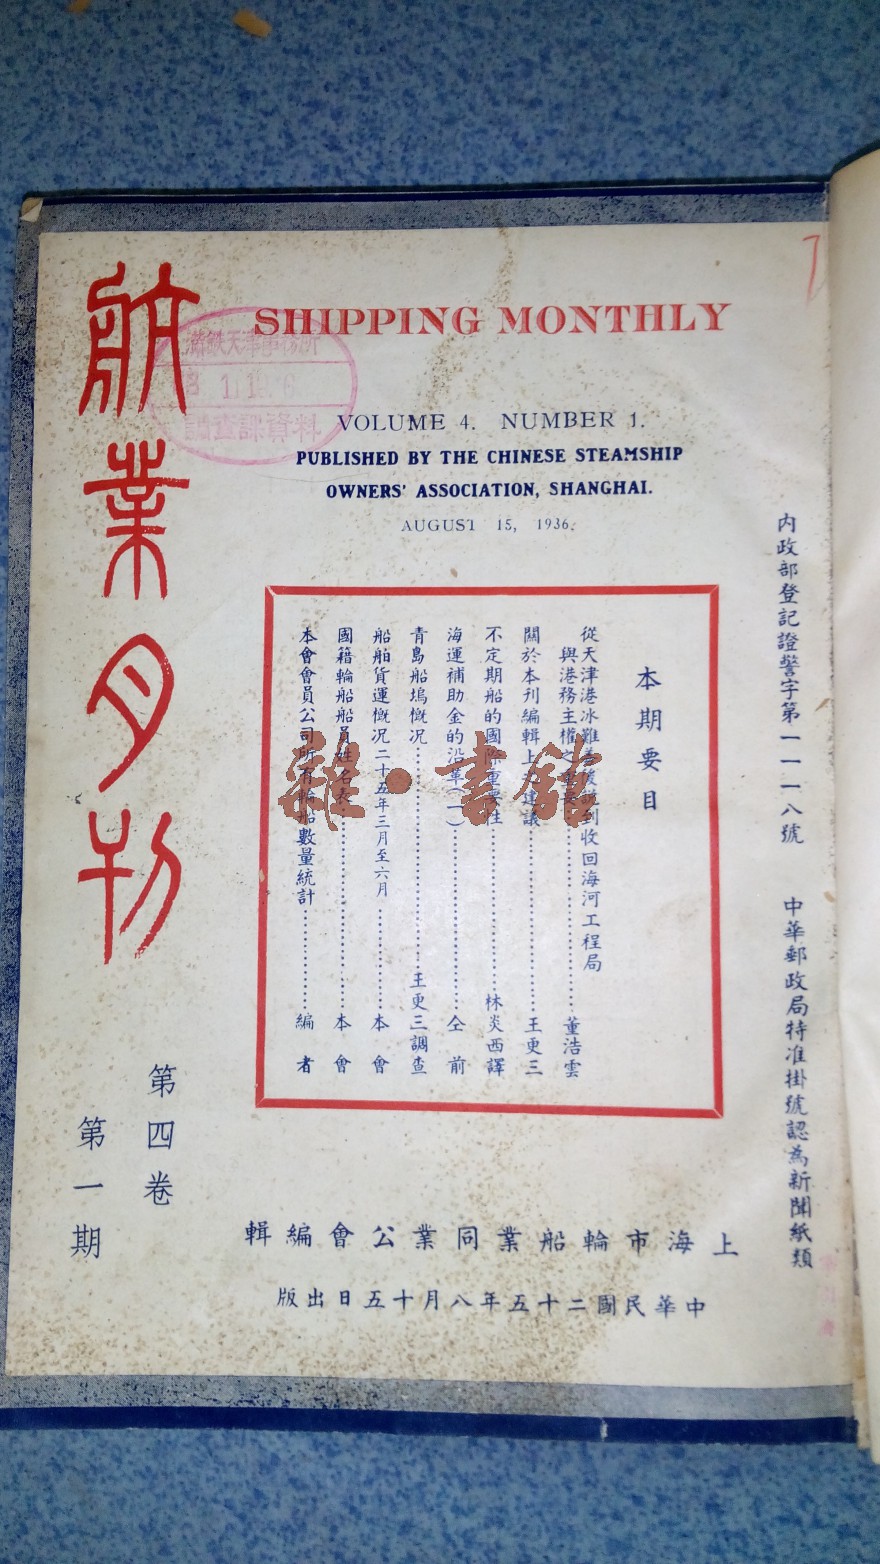 航業月刊
SHIPPING MONTHLY
VOLUME 4. NUMBER 1.
PUBLISHED BY THE CHINESE STEAMSHIP
OWNERS' ASSOCIATION, SHANGHAI.
AUGUST 15, 1936.
內政部登記證警字第一一一八號 中華郵政局特准掛號認為新聞紙類
本期要目
從天津港冰難善後說到收回海河工程局
與港務主權之……董浩雲
關於本刊編輯上之建議……王更三
不定期船的國際重要性……林炎西譯
海運補助金的沿革(一)……仝前
青島船塢概况……王更三調查
船舶貨運概况二十五年三月至六月……本會
國籍輪船船員姓名表……本會
本會會員公司所有輪船數量統計……編者
第四卷
第一期
上海市輪船業同業公會編輯
中華民國二十五年八月十五日出版
滿鉄天津事務所
調查課資料
雜·書館